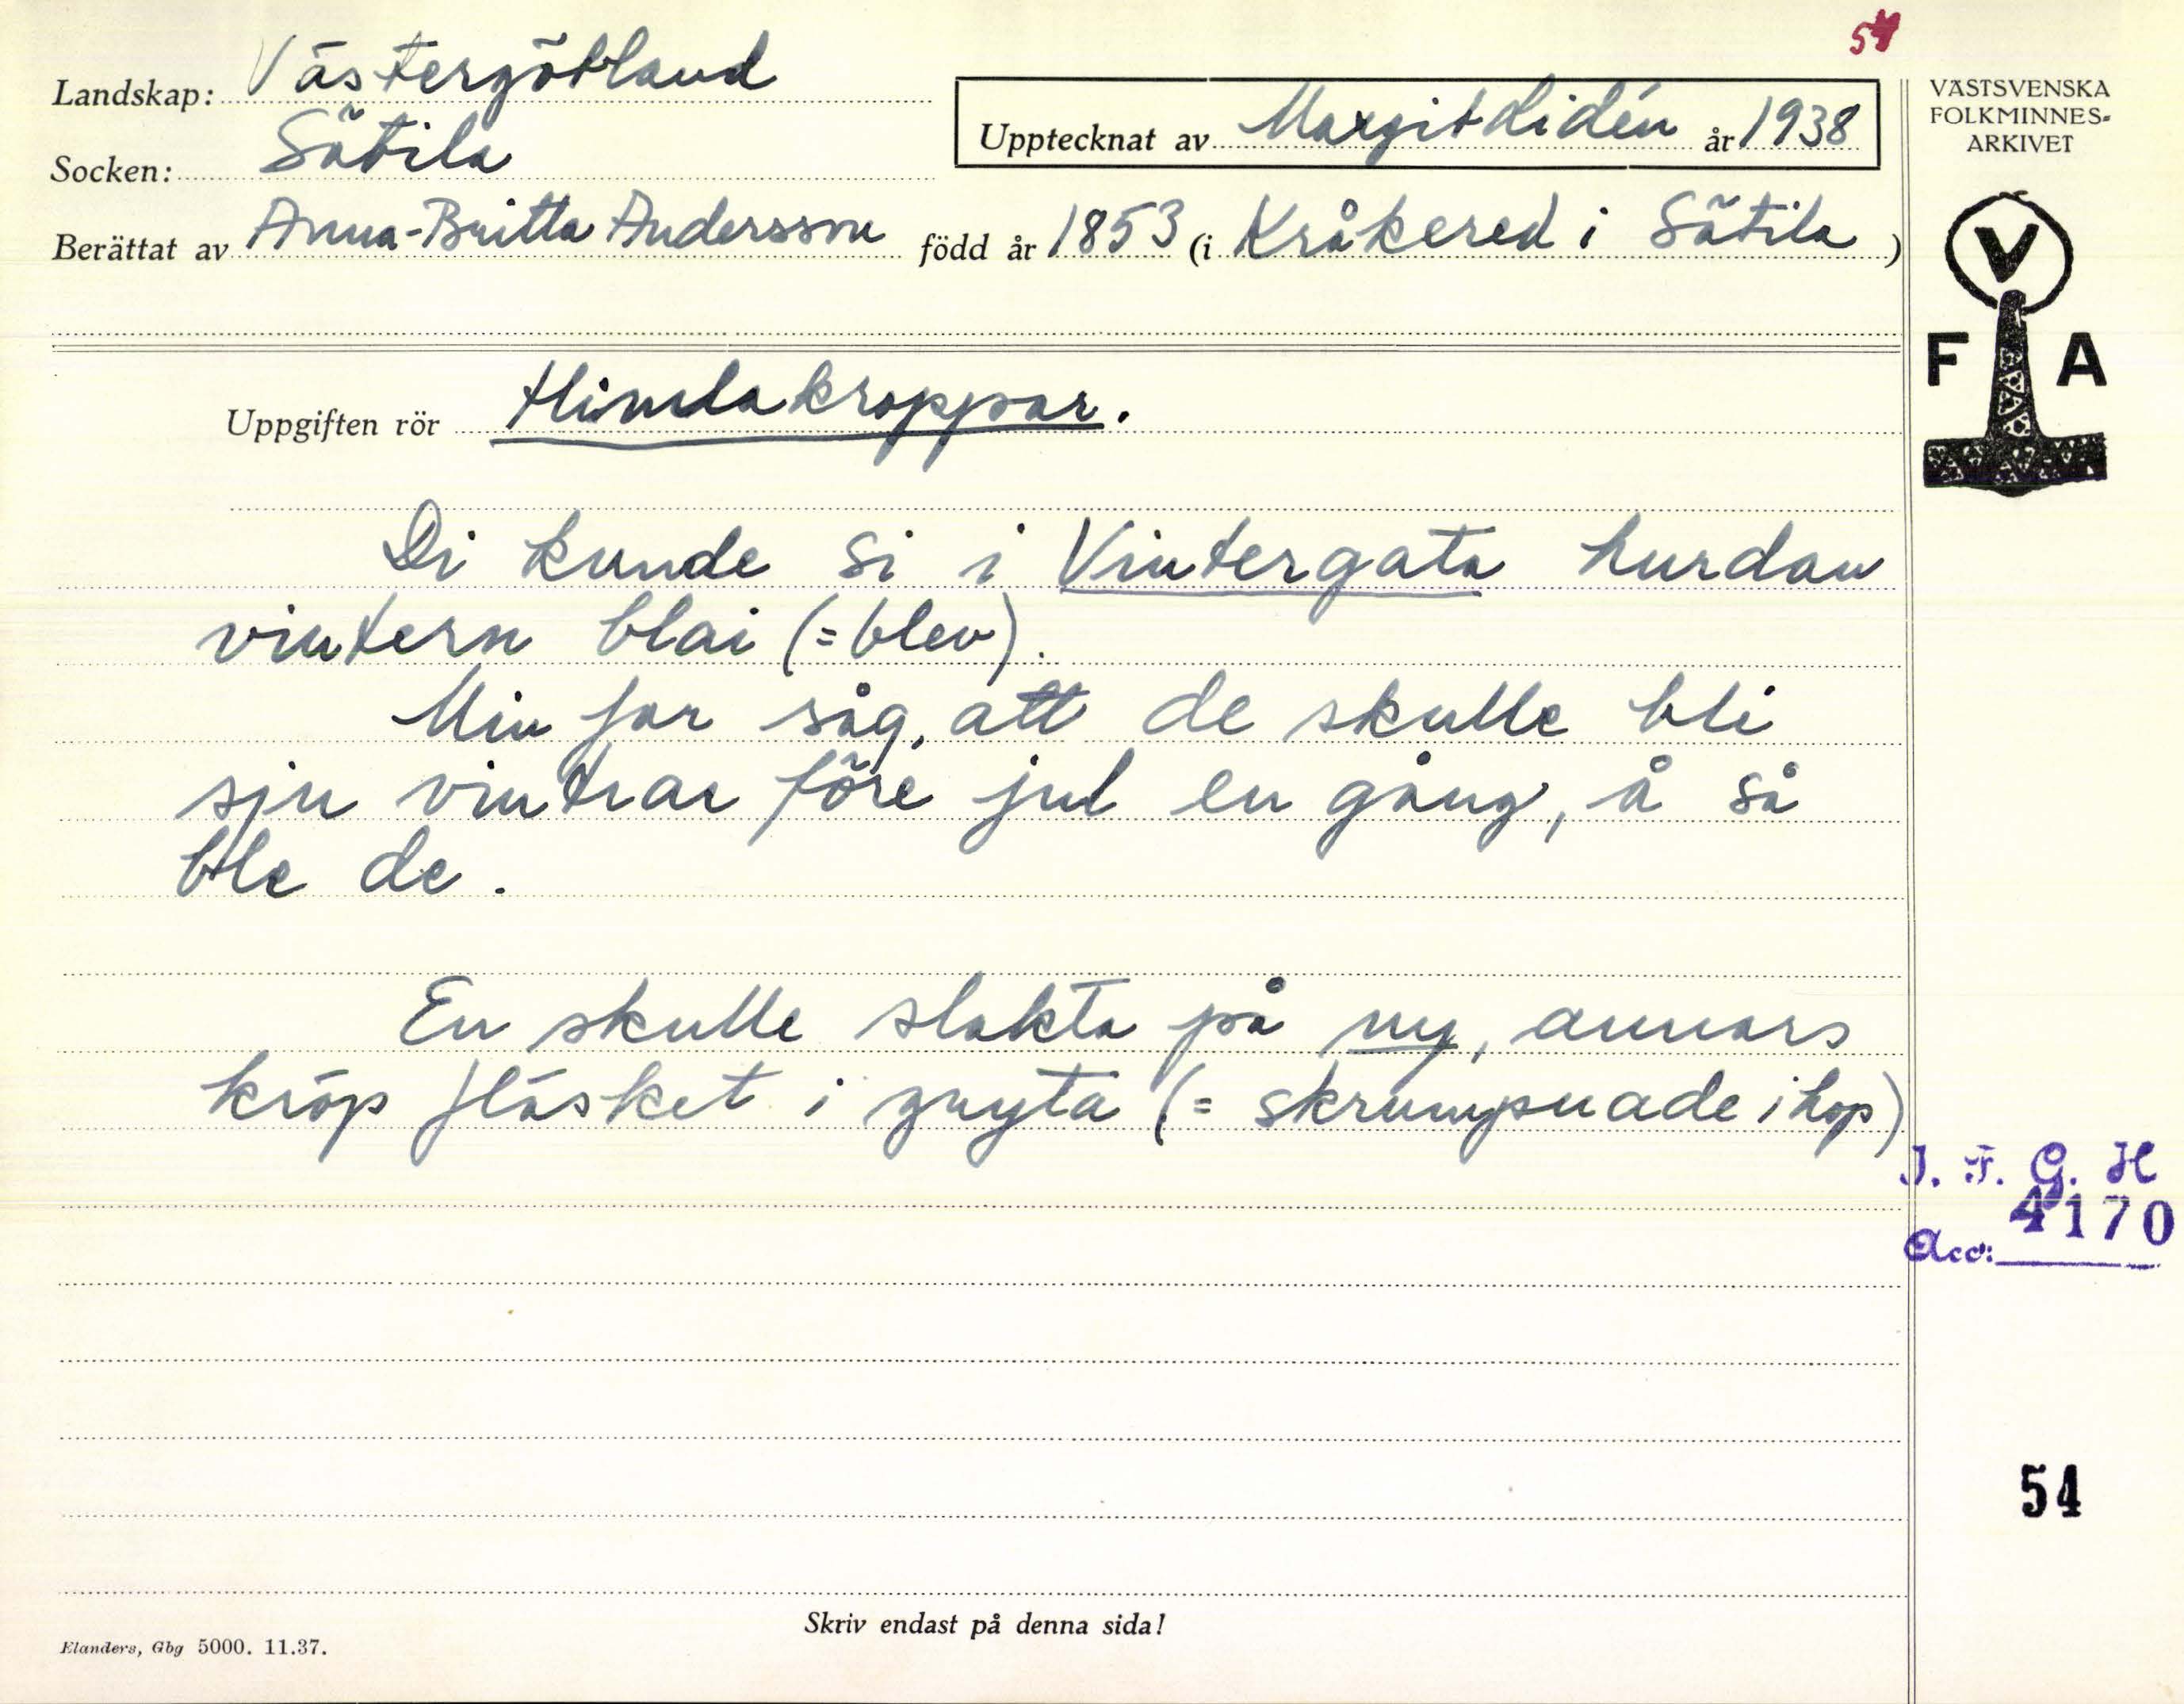 54
Landskap: Västergötland
Socken: Sätila
Upptecknat av Margit Lidén år 1938
Berättat av Anna-Britta Andersson född år 1853 (i Kråkered i Sätila)
VÄSTSVENSKA
FOLKMINNES-
ARKIVET
V
F A
Uppgiften rör Himlakroppar.
Di kunde si i Vintergata hurdan
vintern blai (=blev).
Min far såg, att de skulle bli
sju vintrar före jul en gång, å så
ble de.
En skulle slakta på ny, annars
kröp fläsket i gryta (= skrumpnade ihop)
I. F. G. H
4170
Acc:
54
Skriv endast på denna sida!
Elanders, Gbg 5000. 11.37.